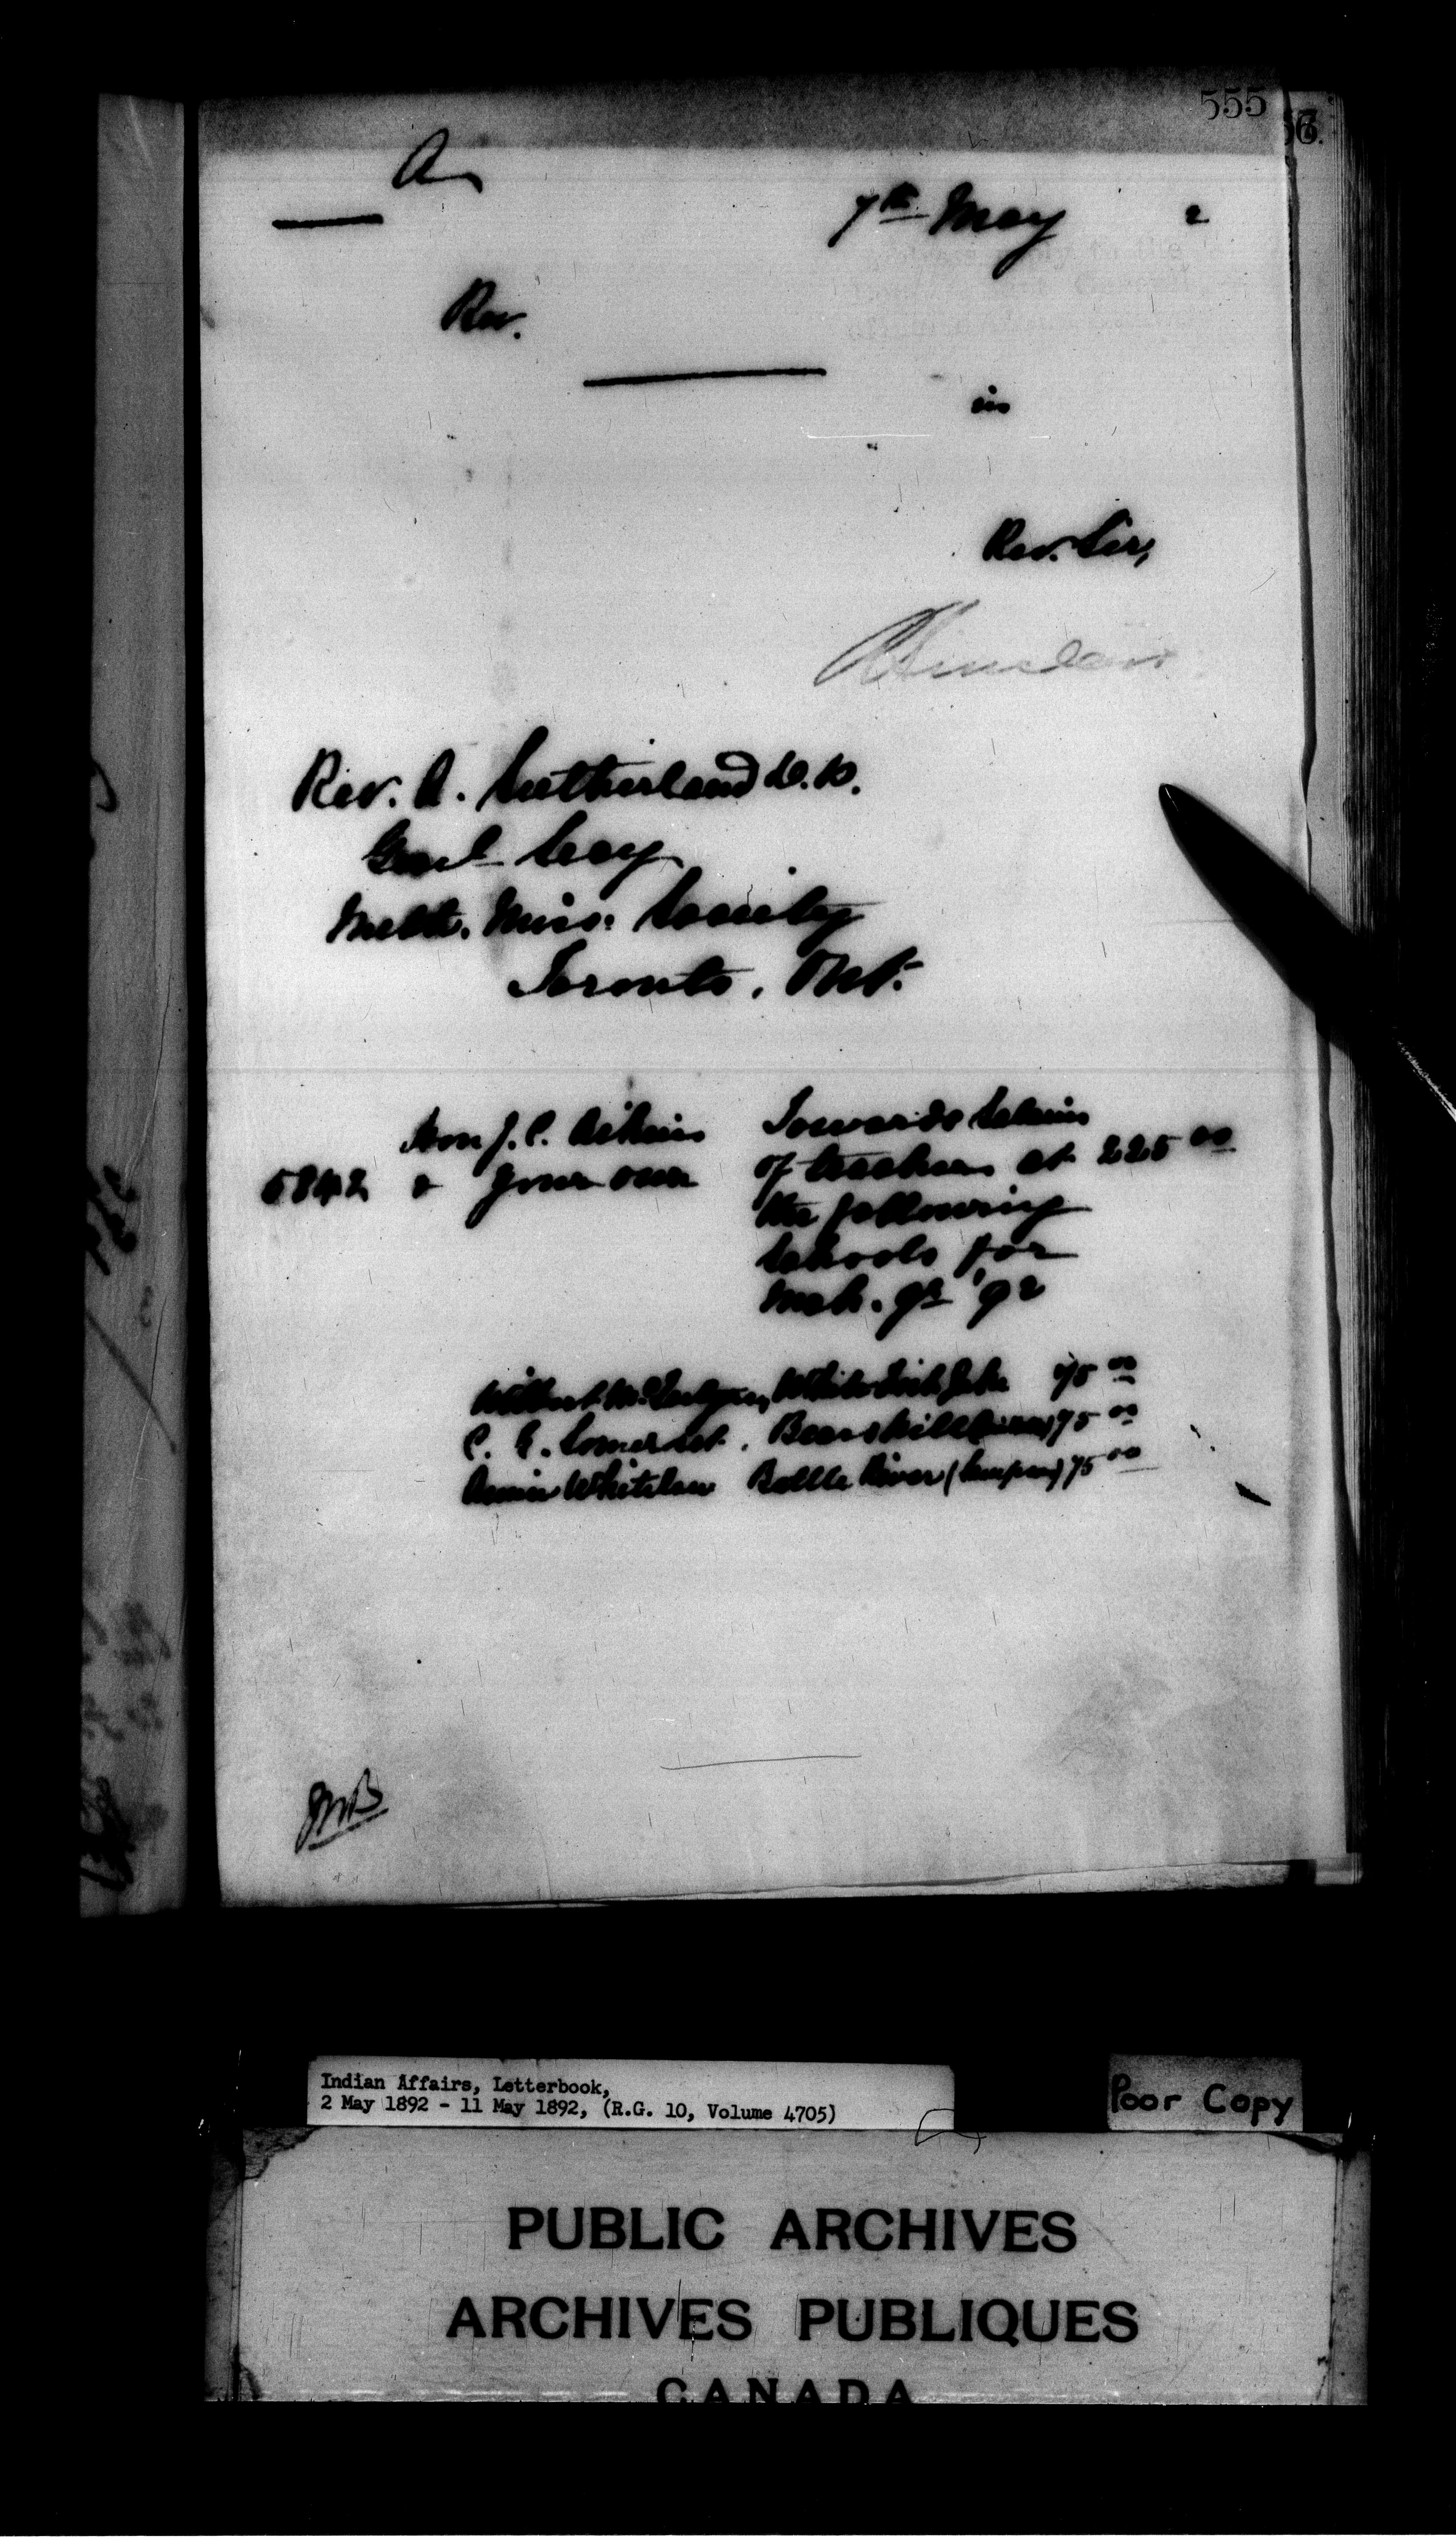 555
56.
A
7th May 2
Rev.
in
Rev. Sir,
Rev. A. Sutherland D.D.
Genl Secy
Meth. Miss. Society
Toronto, Ont.
Hon J. C. Aikins Towards Salaries
5842 & your own of teachers at 225 00
the following
Schools for
Mch. qr '92
Whitefish Lake 75 00
C. E. Somerset. Bears Hill 75 00
Annie Whitelaw Battle River (Sampson) 75 00
JMB
Indian Affairs, Letterbook,
2 May 1892 - 11 May 1892, (R.G. 10, Volume 4705)
Poor Copy
PUBLIC ARCHIVES
ARCHIVES PUBLIQUES
CANADA